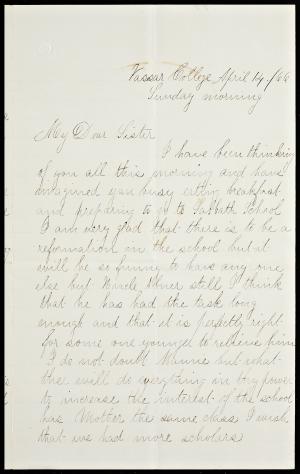 Vassar College April 14 /66
Sunday morning
My Dear Sister
I have been thinking
of you all this morning and have
imagined you busy eating breakfast
and preparing to go to Sabbath School
I am very glad that there is to be a
reformation in the school but it
will be so funny to have any one
else but Uncle Abner still I think
that he has had the task long
enough and that it is perfectly right
for some one younger to relieve him
I do not doubt but what
will do everything in power
to increase the interest of the school
has Mother the same class I wish
that we had more scholars